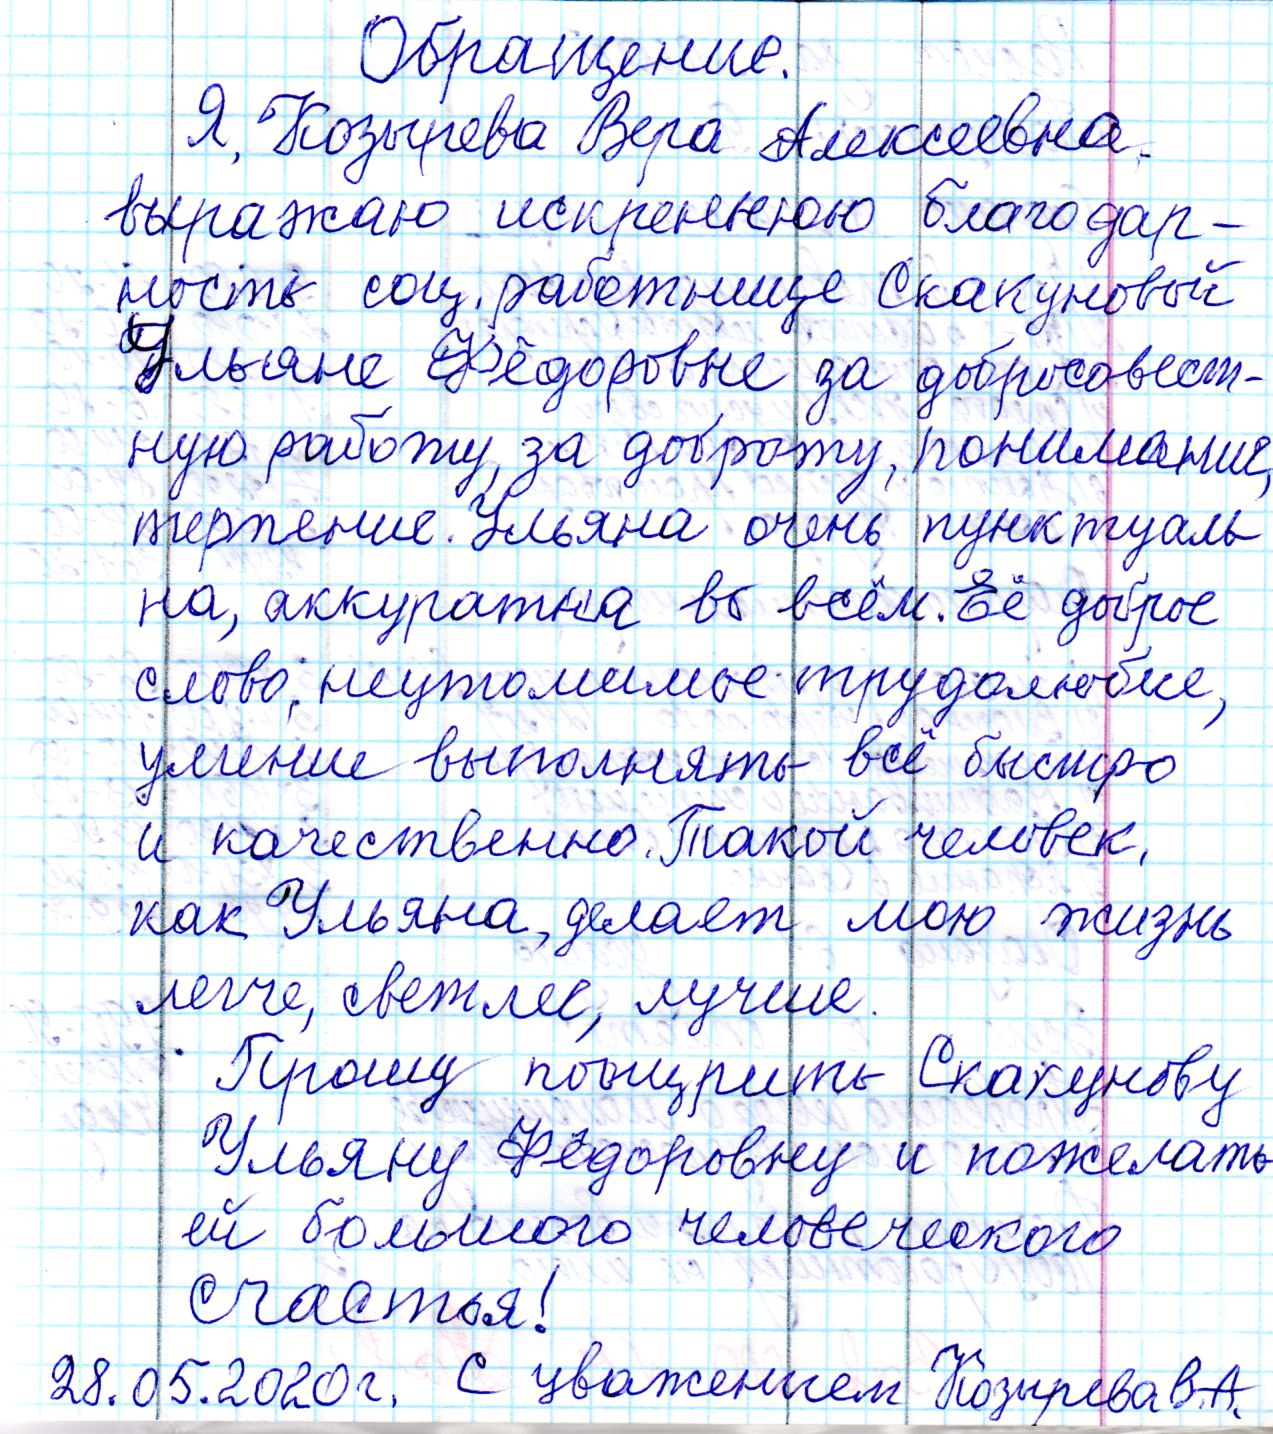 Обращение.
Я, Козырева Вера Алексеевна,
выражаю искреннюю благодар-
ность соц. работнице Скакуновой
Ульяне Фёдоровне за добросовест-
ную работу, за доброту, понимание,
терпение. Ульяна очень пунктуаль-
на, аккуратна во всём. Её доброе
слово, неутомимое трудолюбие,
умение выполнять всё быстро
и качественно. Такой человек,
как Ульяна, делает мою жизнь
легче, светлее, лучше.
Прошу поощрить Скакунову
Ульяну Фёдоровну и пожелать
ей большого человеческого
счастья!
28.05.2020г. С уважением Козырева В.А.